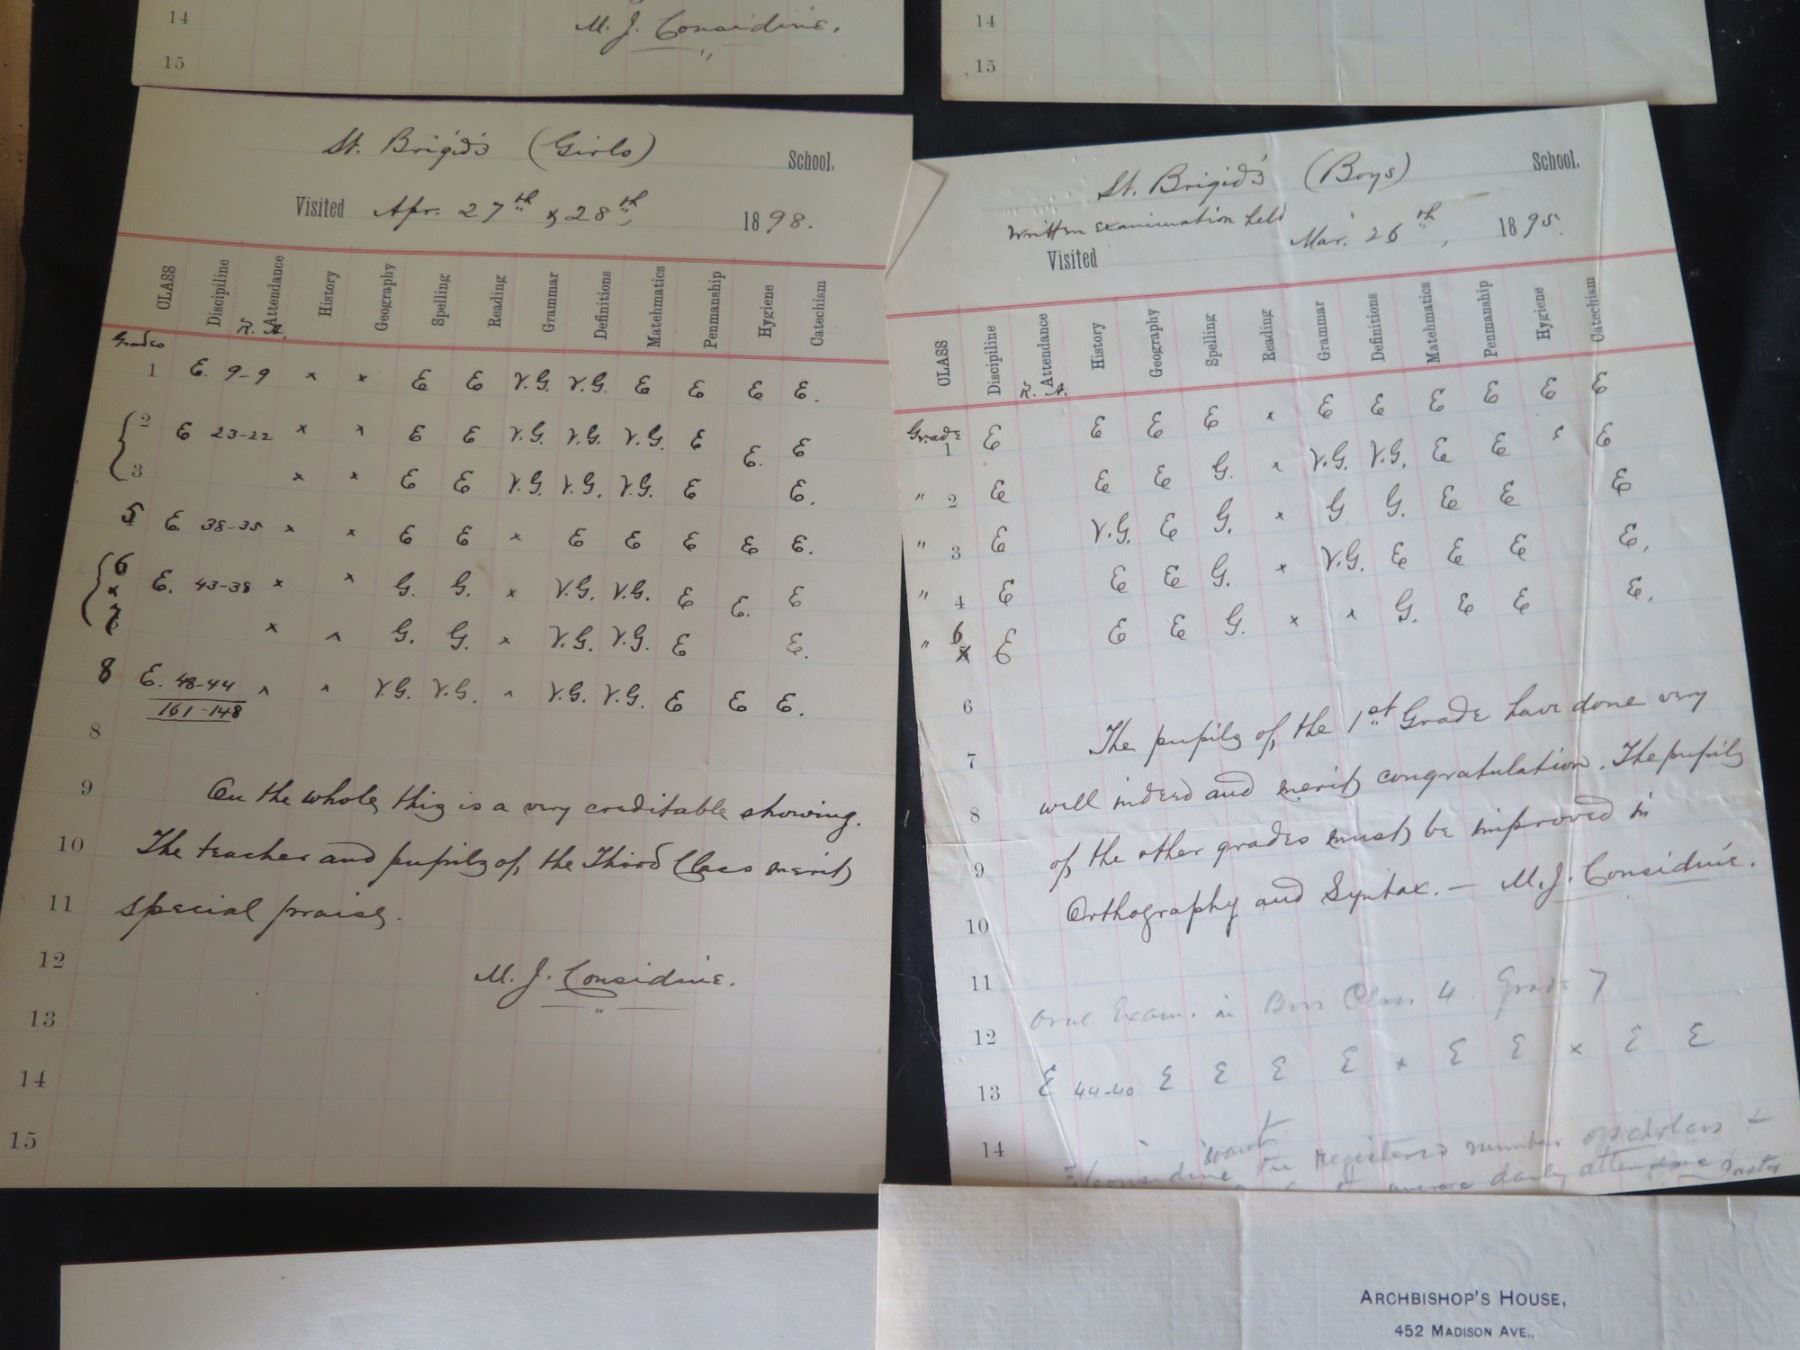 14
M. J. Considine.
15
14
15
St. Brigid's (Girls) School.
Visited Apr. 27th & 28th, 1898.
CLASS Discipline Attendance History Geography Spelling Reading Grammar Definitions Matehmatics Penmanship Hygiene Catechism
R. A.
Grades
1 E. 9-9 x x E E V.G. V.G. E E E E.
2 E 23-22 x x E E V.G. V.G. V.G. E E. E
3 x x E E V.G. V.G. V.G. E E.
5 E. 38-35 x x E E x E E E E E.
6 E. 43-38 x x G. G. x V.G. V.G. E E. E
x
7 x x G. G. x V.G. V.G. E E.
8 E. 48-44 x x V.G. V.G. x V.G. V.G. E E E.
161-148
8
9 On the whole, this is a very creditable showing.
10 The teacher and pupils of the Third Class merit
11 special praise.
12 M. J. Considine.
13
14
15
St. Brigid's (Boys) School.
Written examination held
Visited Mar. 26th, 1895.
CLASS Discipline Attendance History Geography Spelling Reading Grammar Definitions Matehmatics Penmanship Hygiene Catechism
R. A.
Grade 1 E E E E x E E E E E E
" 2 E E E G. x V.G. V.G. E E E E
" 3 E V.G. E G. x G G. E E E
" 4 E E E G. x V.G. E E E E.
" 6 E E E G. x x G. E E E.
6
7 The pupils of the 1st Grade have done very
8 well indeed and merit congratulation. The pupils
9 of the other grades must be improved in
10 Orthography and Syntax. — M. J. Considine.
11
12 Oral Exam. in Boys Class 4 Grade 7
13 E 44-40 E E E E x E E x E E
14
want
Considine the registered number of scholars +
average daily attendance
ARCHBISHOP'S HOUSE,
452 MADISON AVE.,